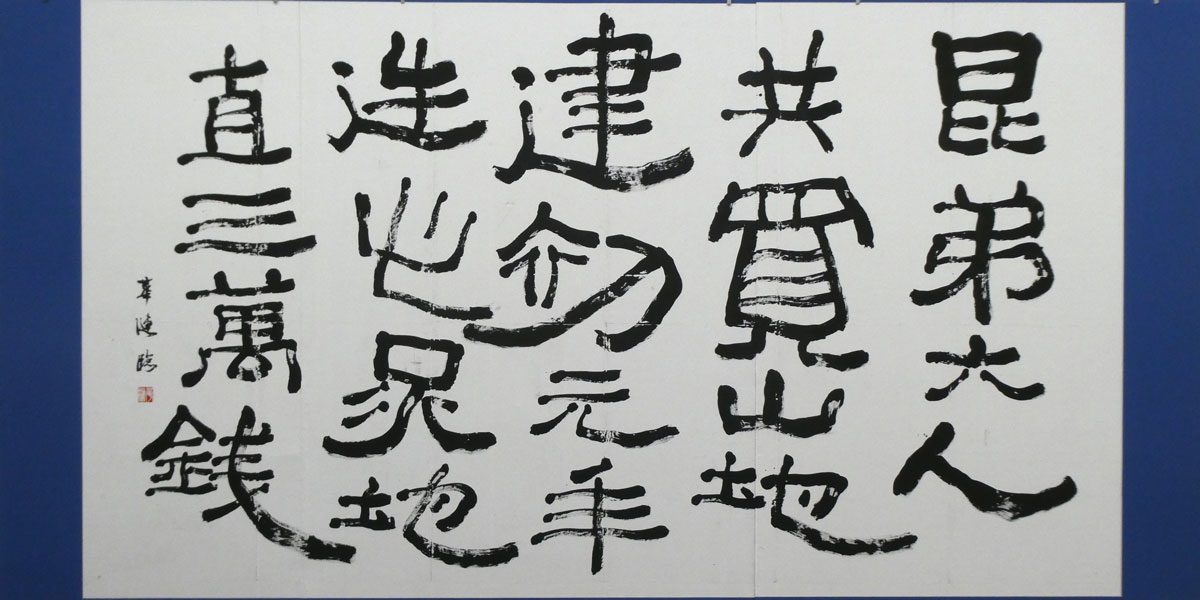 昆弟六人
共買山地
建初元年
造此冢地
直三萬錢